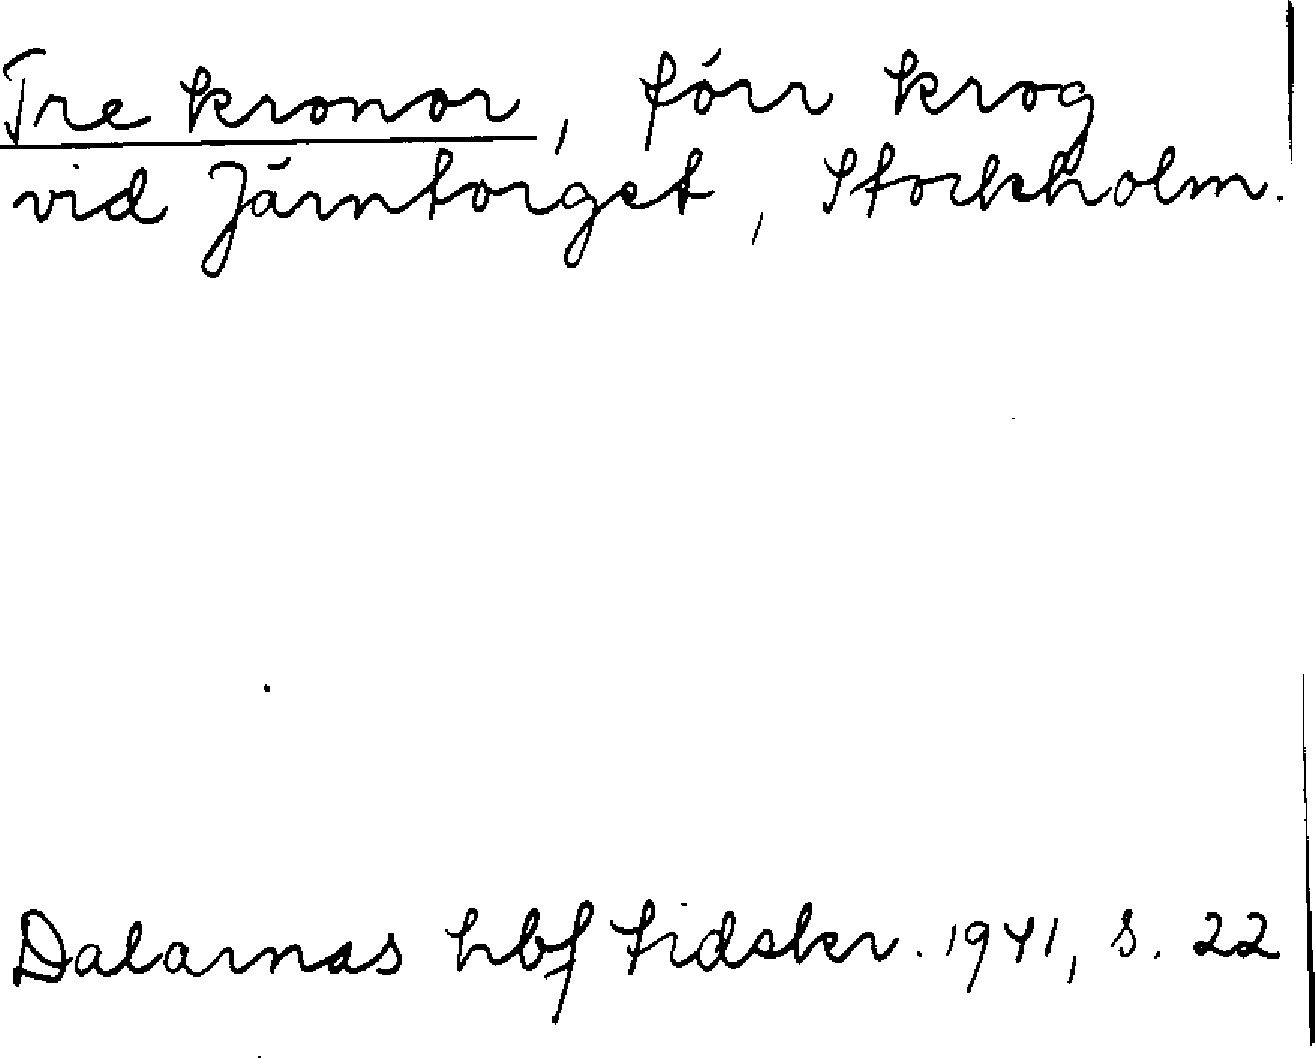 Tre kronor, förr krog
vid Järntorget, Stockholm.
Dalarnas hbf tidskr. 1941, s. 22